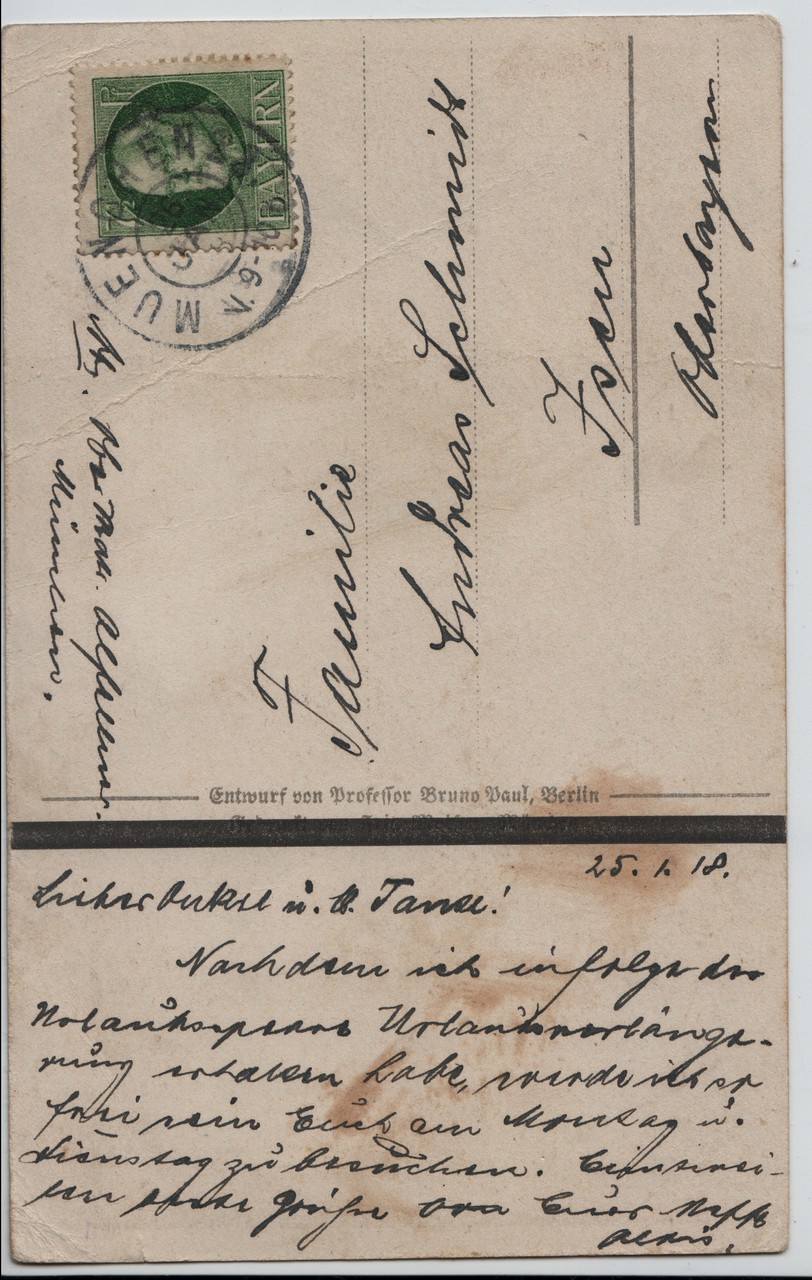 BAYERN
MUENCHEN
V. 9-10
Familie
Andreas Schmidt
Isen
Oberbayern
München.
Entwurf von Professor Bruno Paul, Berlin
25. 1. 18.
Lieber Onkel u. Tante!
Nachdem ich infolge der
Urlaubssperre Urlaubsverlänge-
rung erhalten habe, werde ich so
frei sein Euch am Montag u.
Dienstag zu besuchen. Einstwei-
len beste Grüße von Euer Neffe
Alois.